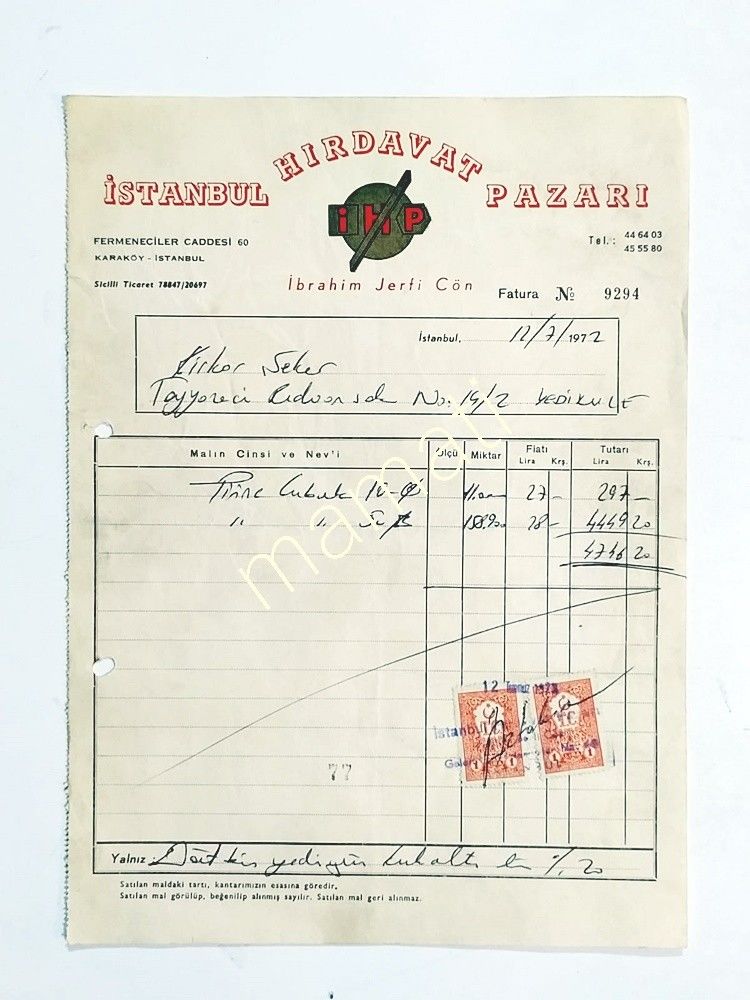 İSTANBUL HIRDAVAT PAZARI
İHP
FERMENECİLER CADDESİ 60
KARAKÖY - İSTANBUL
Tel.: 44 64 03
45 55 80
Sicilli Ticaret 78847/20697
İbrahim Jerfi Cön
Fatura № 9294
İstanbul, 12/7/1972
Kirkor Şeker
Tayyareci No. 14/2 YEDİKULE
Malın Cinsi ve Nev'i Ölçü Miktar Fiatı Lira Krş. Tutarı Lira Krş.
Pirinç Çubuk 10 11.00 27 — 297 —
" " 50 158.900 28 — 4449 20
4746 20
12 Temmuz 1972
İstanbul
TC
1 1 1 1
77
Yalnız: Dört bin yediyüz kırkaltı lira %, 20
Satılan maldaki tartı, kantarımızın esasına göredir.
Satılan mal görülüp, beğenilip alınmış sayılır. Satılan mal geri alınmaz.
mamati